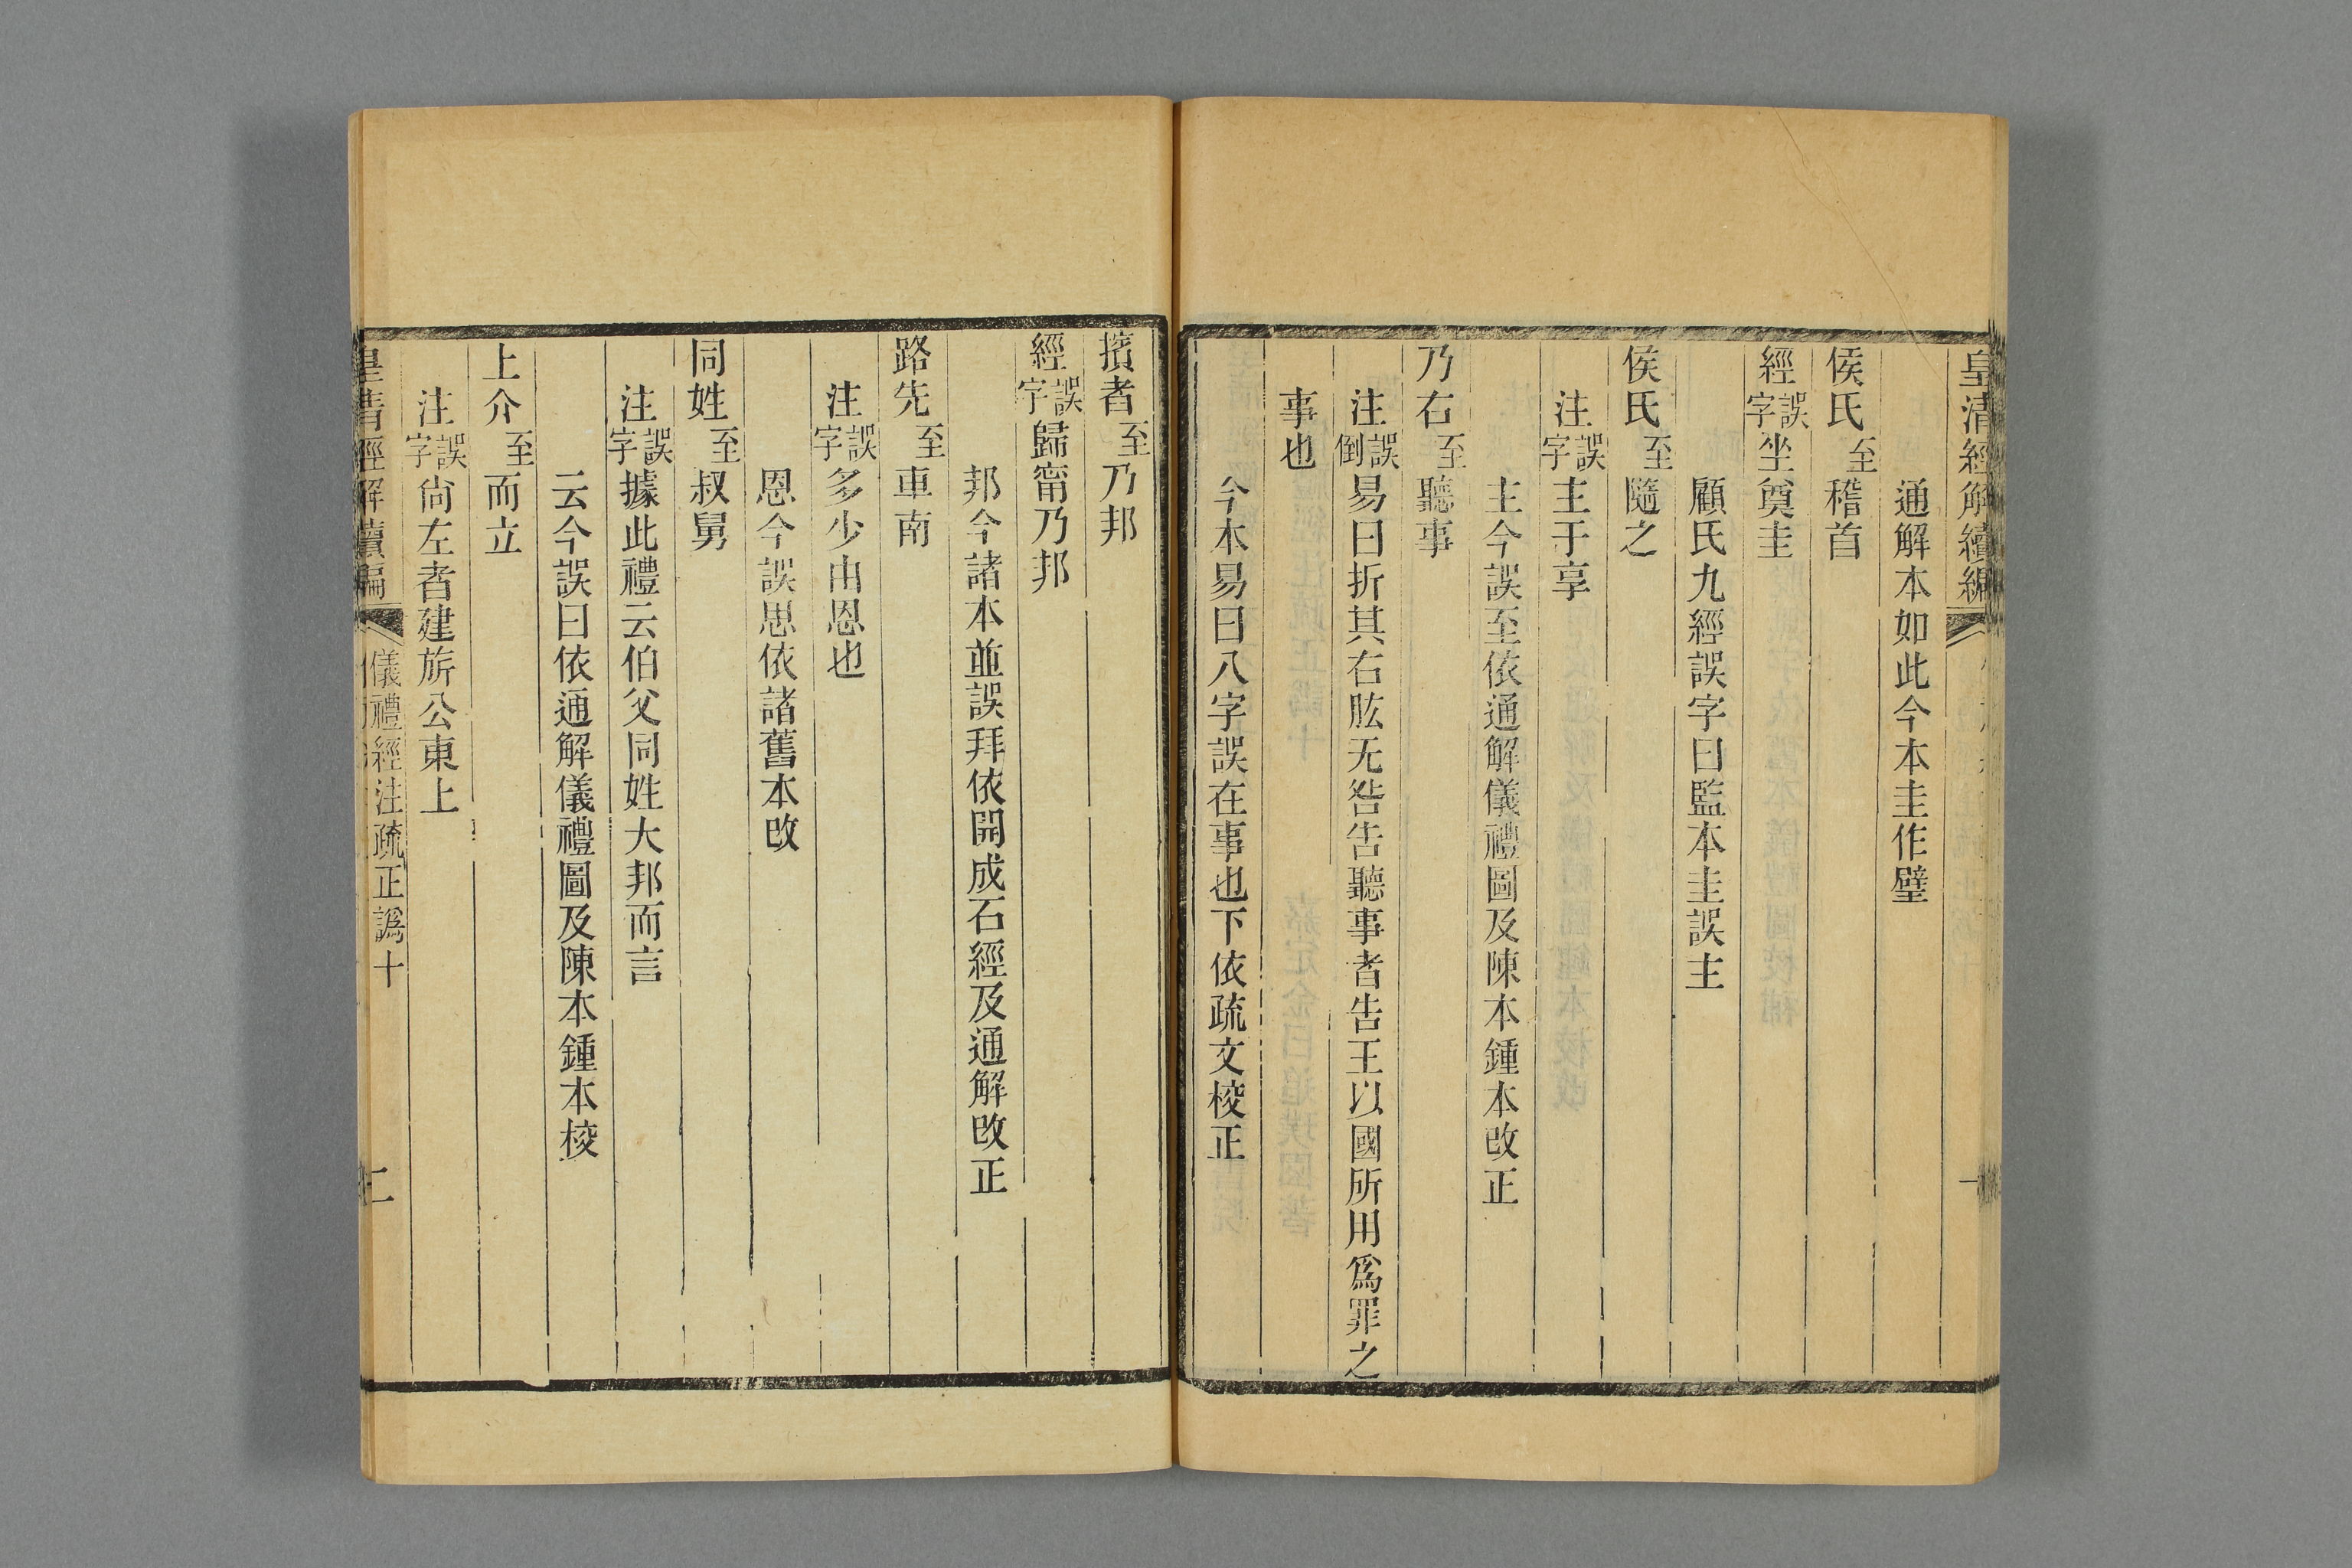 皇清經解續編
一
通解本如此今本圭作璧
侯氏至稽首
經誤字坐奠圭
顧氏九經誤字曰監本圭誤主
侯氏至隨之
注誤字主于享
主今誤至依通解儀禮圖及陳本鍾本改正
乃右至聽事
注誤倒易曰折其右肱无咎告聽事者告王以國所用爲罪之
事也
今本易曰八字誤在事也下依疏文校正
擯者至乃邦
經誤字歸甯乃邦
邦今諸本並誤拜依開成石經及通解改正
路先至車南
注誤字多少由恩也
恩今誤思依諸舊本改
同姓至叔舅
注誤字據此禮云伯父同姓大邦而言
云今誤曰依通解儀禮圖及陳本鍾本校
上介至而立
注誤字尙左者建旂公東上
皇清經解續編
儀禮經注疏正譌十
二